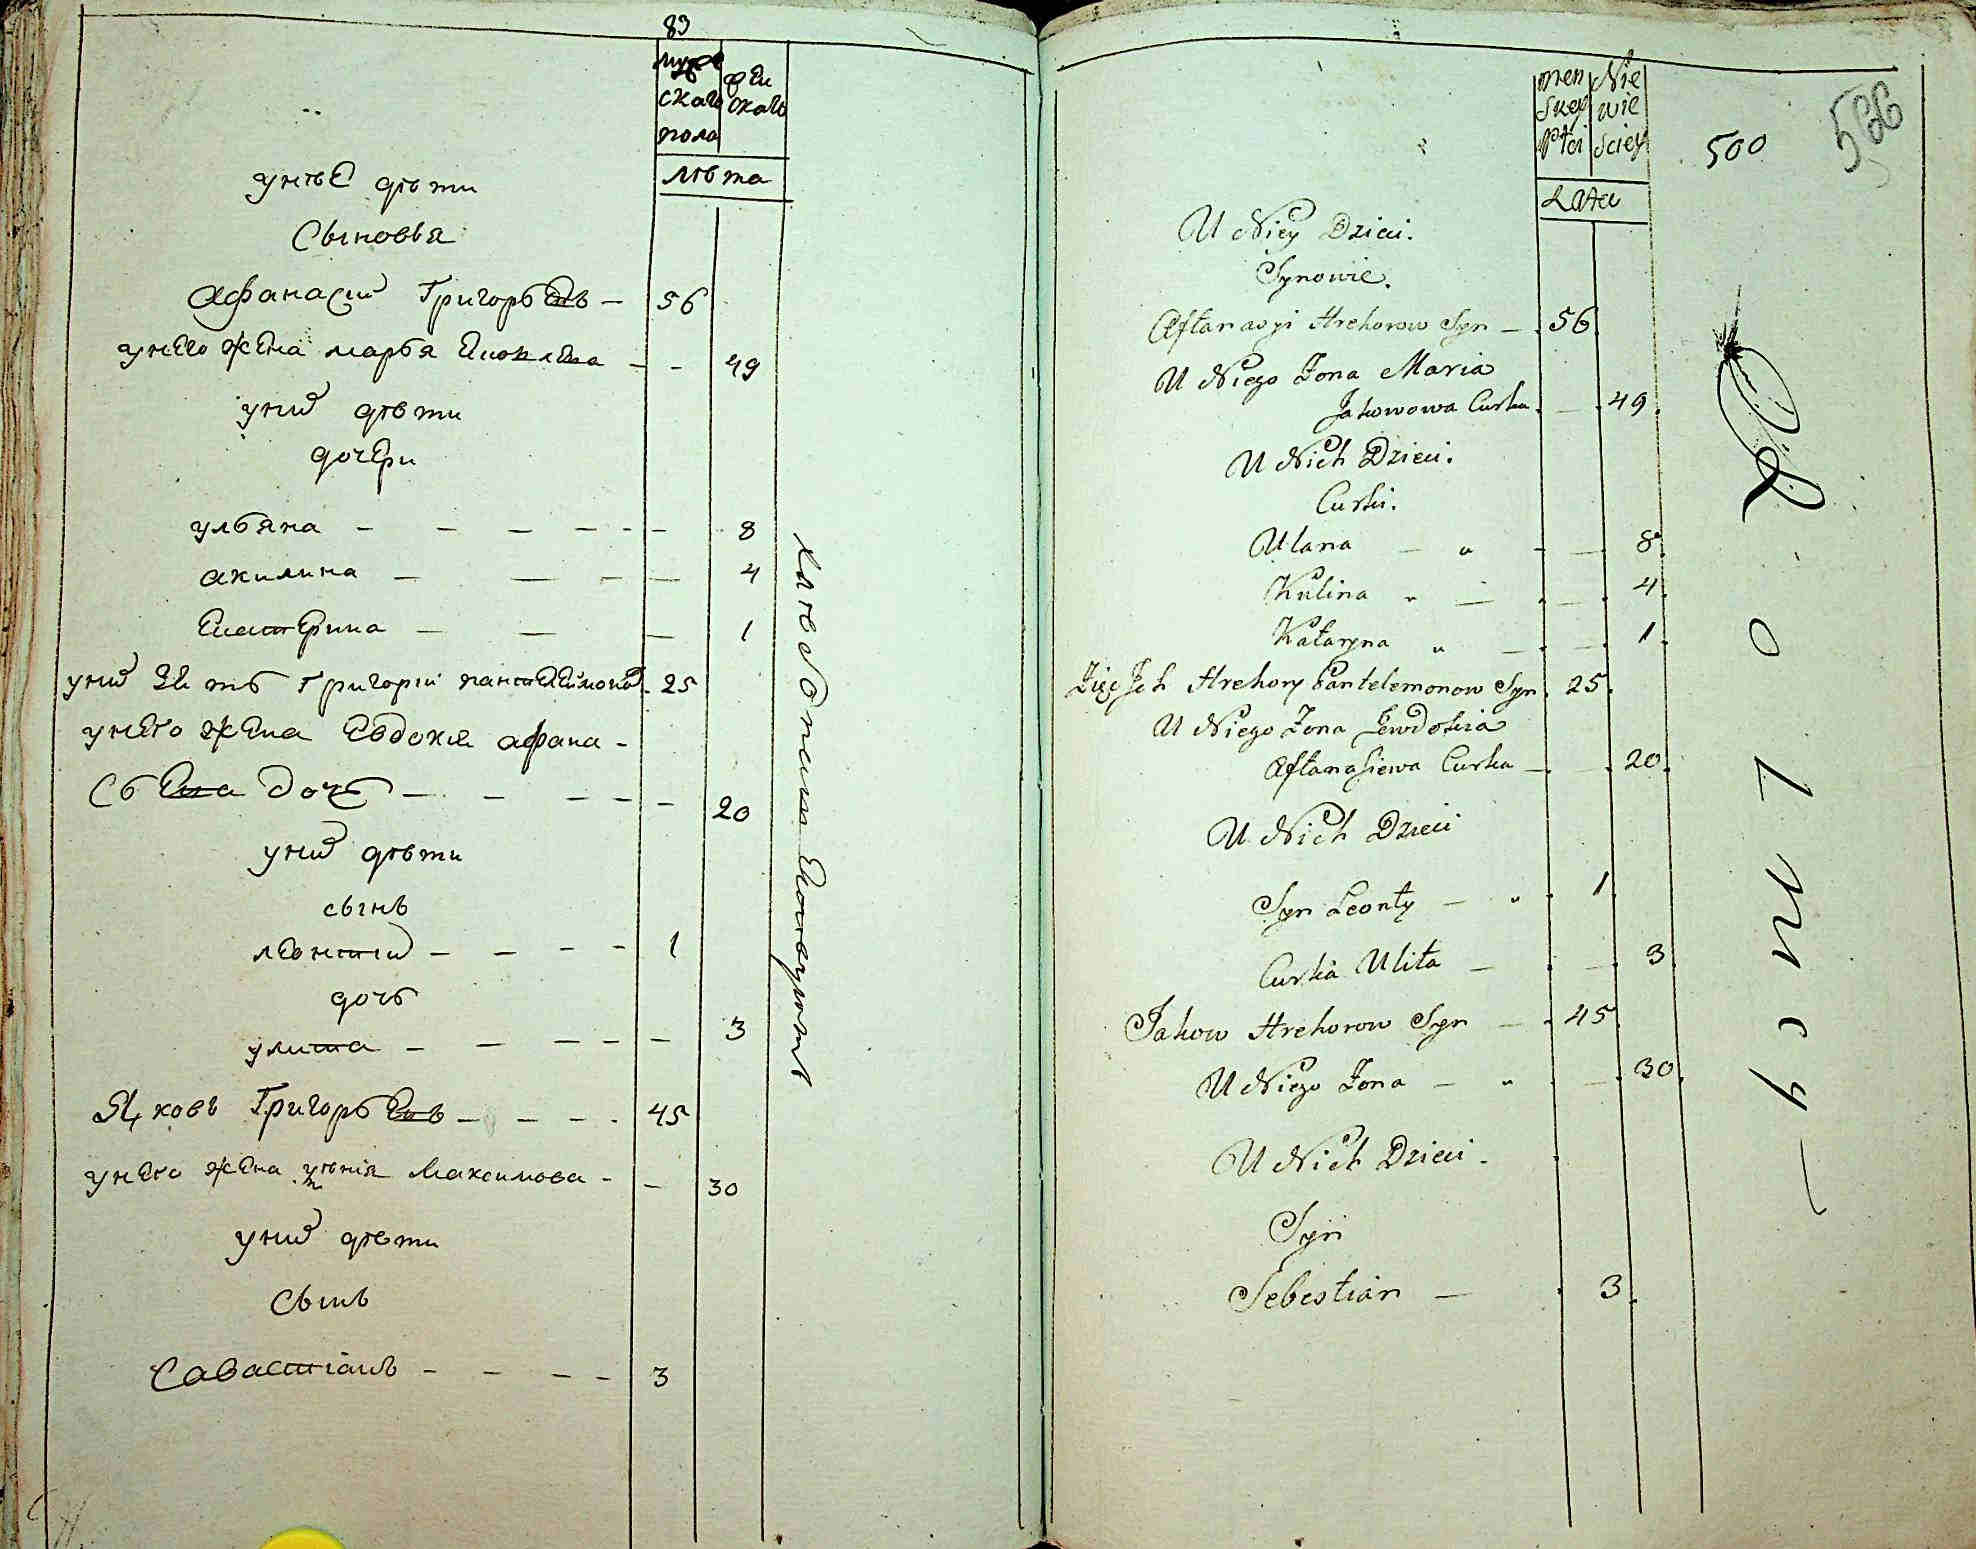 83
мужескаго пола
женскаго
лѣта
у нѣе дѣти
Сыновья
Афанасий Григорьевъ — 56
у него жена марья Яковлева — - 49
у них дѣти
дочери
ульяна — — — — - — 8
акилина — — - — 4
Екатерина — — — 1
у них зять Григорий пантелеимонов - 25
у него жена Евдокия афана -
сьева дочь — - — - - 20
у них дѣти
сынъ
леонтий — - - - 1
дочь
улита — - - - - 3
Яковъ Григорьевъ — - - . 45
у него жена Максимова - - 30
у них дѣти
Сынъ
Савастіанъ - - - - 3
Men
skey
Płci
Nie
wie
sciey
Lata
500
566
U Niey Dzieci.
Synowie.
Aftanasyi Hrehorow Syn — 56
U Niego Żona Maria
Jakowowa Curka. — 49
U Nich Dzieci.
Curki.
Ulana — „ - — 8
Kulina „ — — 4
Kataryna „ — — 1
Zięć Ich Hrehory Pantelemonow Syn 25
U Niego Żona Jewdokia
Aftanasiewa Curka — 20
U Nich Dzieci
Syn Leonty — „ 1
Curka Ulita — — 3
Jakow Hrehorow Syn — 45
U Niego Żona — „ — 30
U Nich Dzieci.
Syn
Sebestian — 3